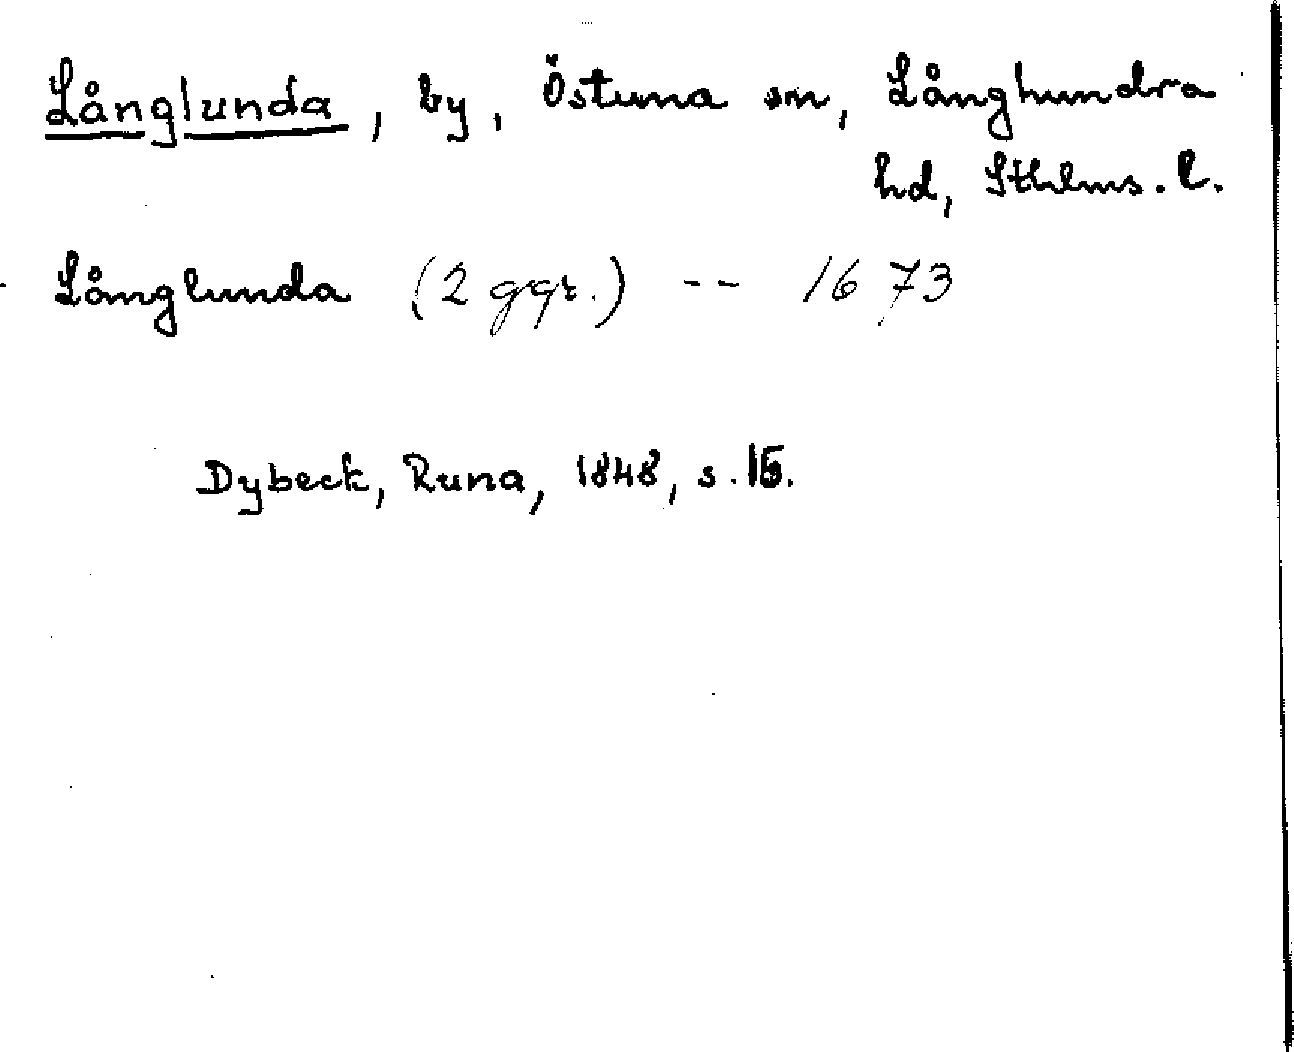 Långlunda, by, Östuna sn, Långhundra
hd, Sthlms. l.
Långlunda (2 ggr.) -- 1673
Dybeck, Runa, 1848, s. 15.